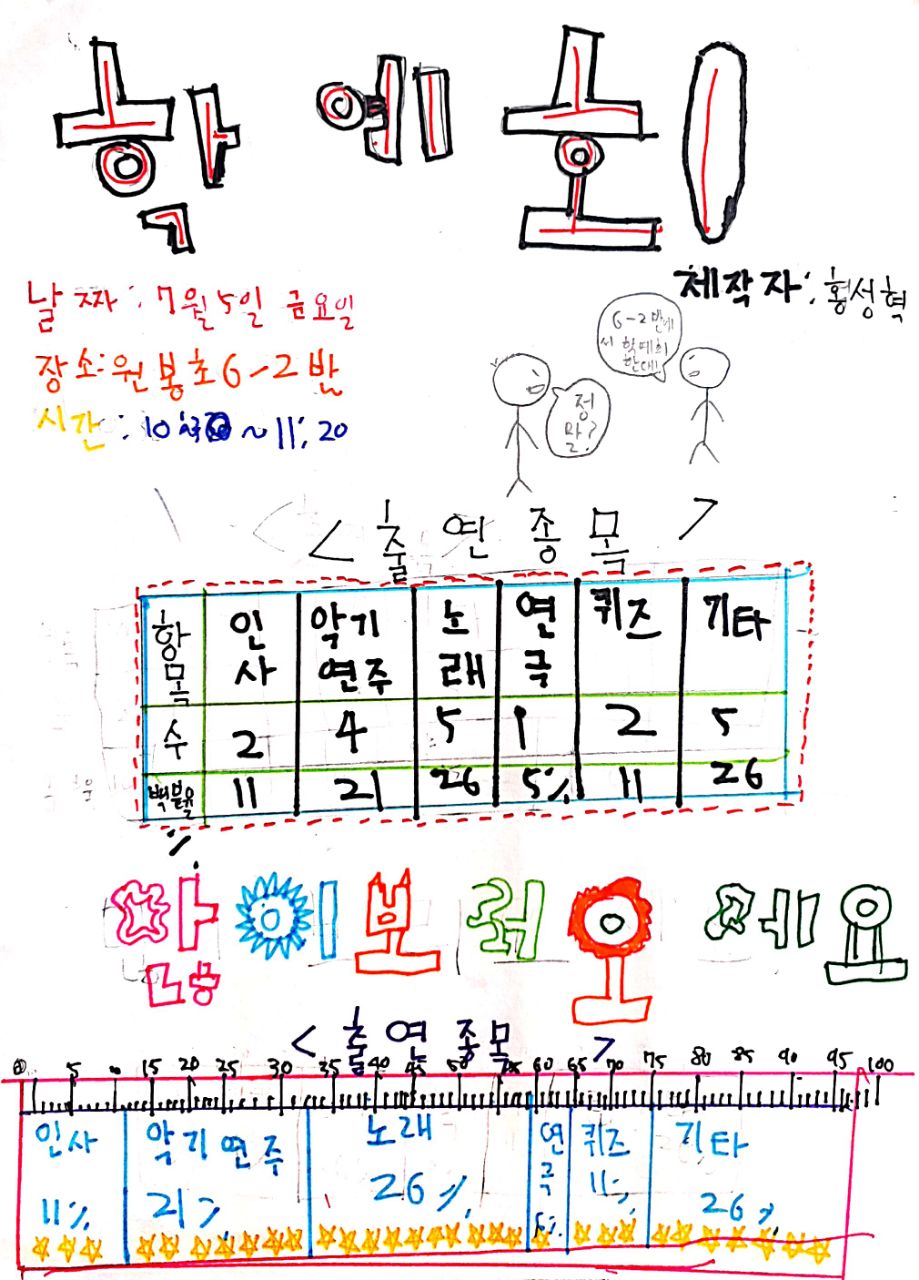 학 예 회
제작자: 황성혁
날짜: 7월 5일 금요일
장소: 원봉초 6-2반
시간: 10시 ~ 11:20
6-2반에
서 학예회
한대!
정
말?
< 출연종목 >
항목 인사 악기연주 노래 연극 퀴즈 기타
수 2 4 5 1 2 5
백분율 11 21 26 5% 11 26
%
<출연종목>
0 5 15 20 25 30 35 40 45 50 60 65 70 75 80 85 90 95 100
인사 악기연주 노래 연극 퀴즈 기타
11% 21% 26% 5% 11% 26%